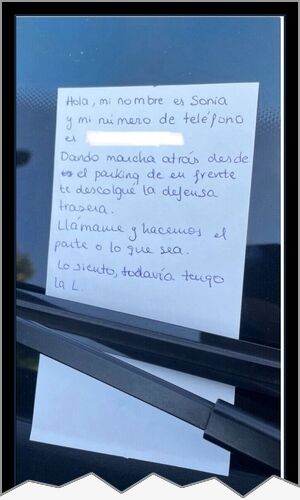 Hola, mi nombre es Sonia
y mi número de teléfono
es
Dando marcha atrás desde
el parking de en frente
te descolgué la defensa
trasera.
Llámame y hacemos el
parte o lo que sea.
Lo siento, todavía tengo
la L.